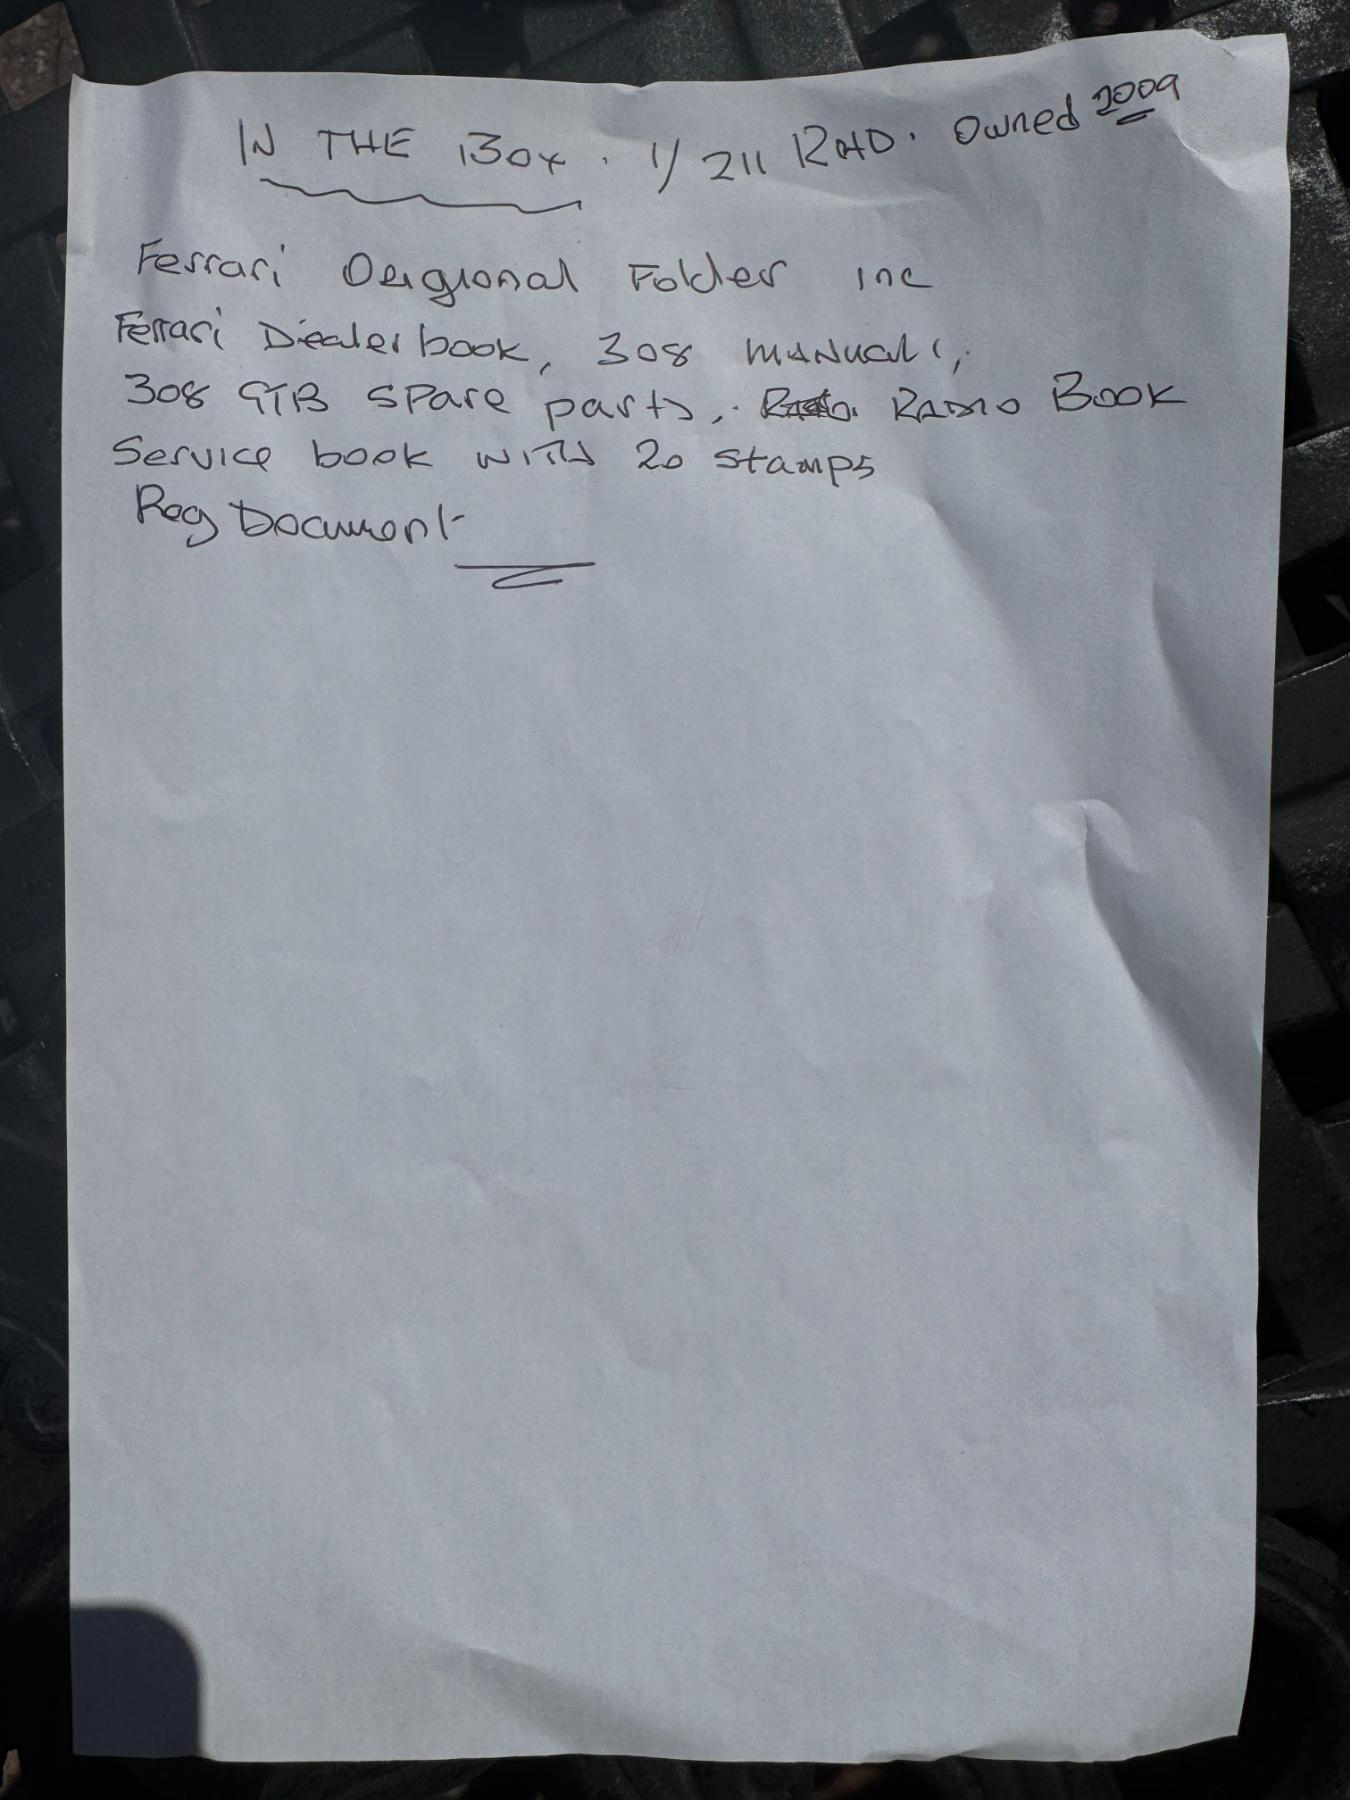 IN THE BOX. 1/211 RHD. Owned 2009
Ferrari Origional Folder inc
Ferrari Dealer book, 308 MANUAL,
308 GTB SPare parts, RADIO BOOK
Service book WITH 20 stamps
Reg Document